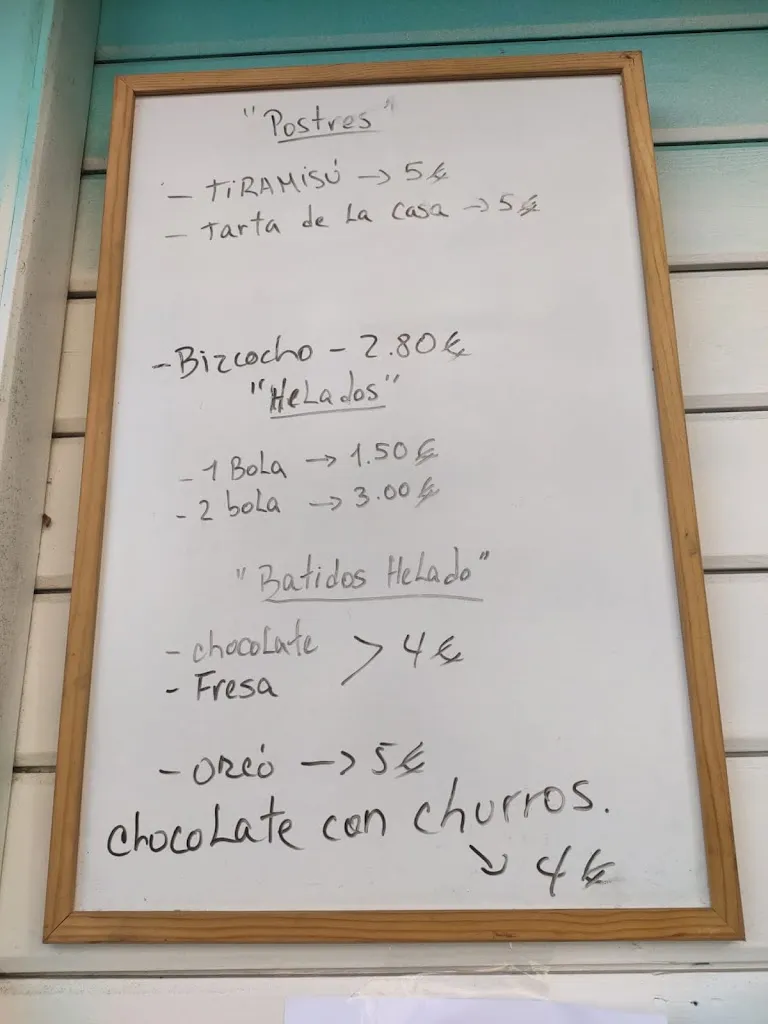 "Postres"
- TIRAMISÚ → 5 €
- Tarta de La casa → 5 €
- Bizcocho - 2.80 €
"HeLados"
- 1 BoLa → 1.50 €
- 2 boLa → 3.00 €
"Batidos HeLado"
- chocoLate > 4 €
- Fresa
- oreó → 5 €
chocoLate con churros.
↘ 4 €